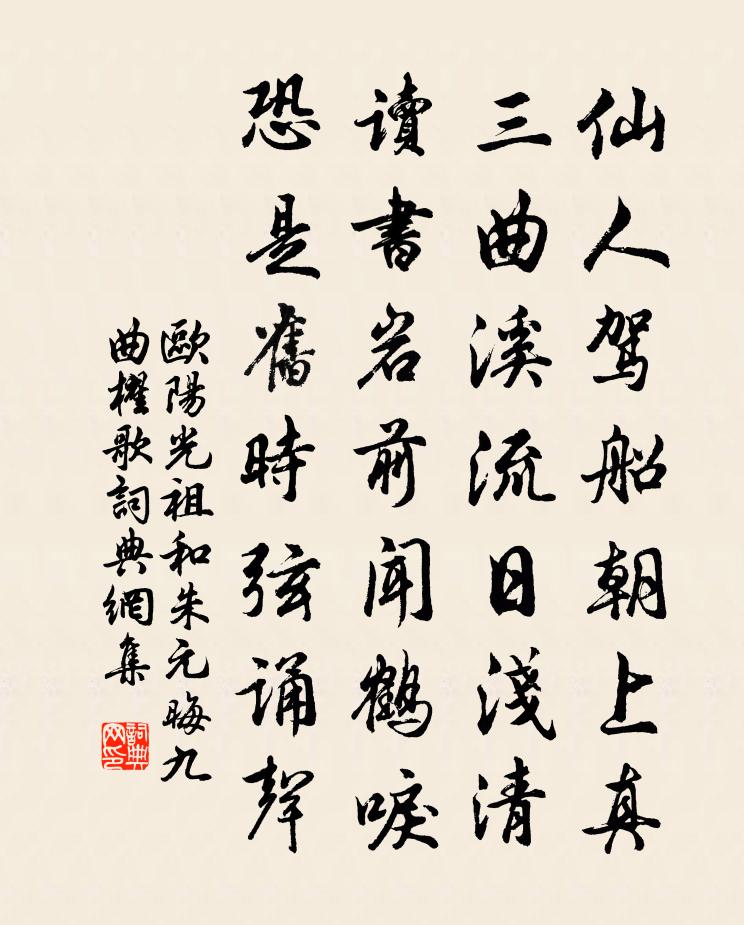 仙人驾船朝上真
三曲溪流日淺清
讀書岩前闻鶴唳
恐是舊時弦誦聲
歐陽光祖和朱元晦九
曲櫂歌詞典網集
詞典
网印